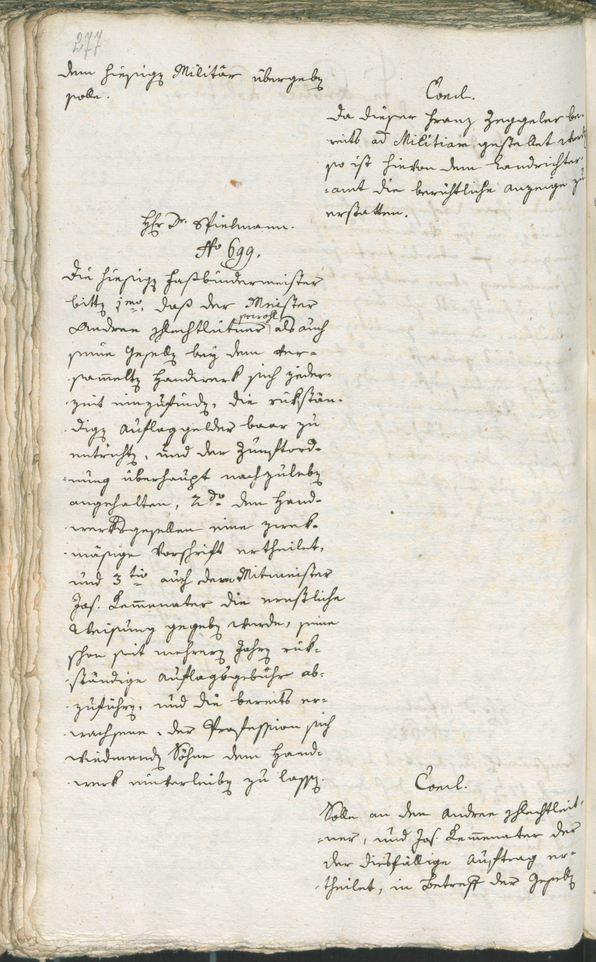 277
dem hiesigen Militär übergeben
solle.
Concl.
Da dieser Franz Zeggeler be-
reits ad Militiam gestellet worden
so ist hievon dem Landrichter-
amt die berichtliche Anzeige zu
erstatten.
Hr Dr. Spielmann.
No 699.
Die hiesigen Faßbindermeister
bitten 1mo, daß der Meister
Andree Schlechtleitner sowohl als auch
seine Gesellen bey dem ver-
sammelten Handwerk sich jeder-
zeit einzufinden, die rükstän-
digen Auflaggelder baar zu
entrichten, und der Zunftord-
nung überhaupt nachzuleben
angehalten, 2do den Hand-
werksgesellen eine zwek-
mäsige Vorschrift ertheilet,
und 3tio auch dem Mitmeister
Jos. Kemmenater die ernstliche
Weisung gegeben werde, seine
schon seit mehreren Jahren rük-
ständige Auflagsgebühr ab-
zuführen, und die bereits er-
wachsene, der Profession sich
widmenden Söhne dem Hand-
werk einverleiben zu lassen.
Concl.
Solle an den Andree Schlechtleit-
ner, und Jos. Kemmenater der
der diesfällige Auftrag er-
theilet, in Betreff der Gesellen